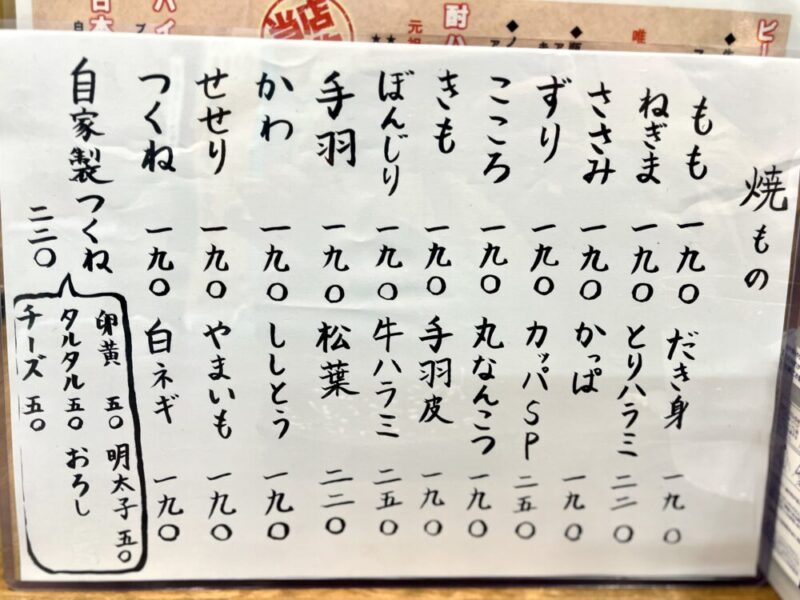 焼もの
もも 一九〇
ねぎま 一九〇
ささみ 一九〇
ずり 一九〇
こころ 一九〇
きも 一九〇
ぼんじり 一九〇
手羽 一九〇
かわ 一九〇
せせり 一九〇
つくね 一九〇
自家製つくね 二二〇
だき身 一九〇
とりハラミ 二二〇
かっぱ 一九〇
カッパSP 二五〇
丸なんこつ 一九〇
手羽皮 一九〇
牛ハラミ 二五〇
松葉 二二〇
ししとう 一九〇
やまいも 一九〇
白ネギ 一九〇
卵黄 五〇 明太子 五〇
タルタル 五〇 おろし
チーズ 五〇